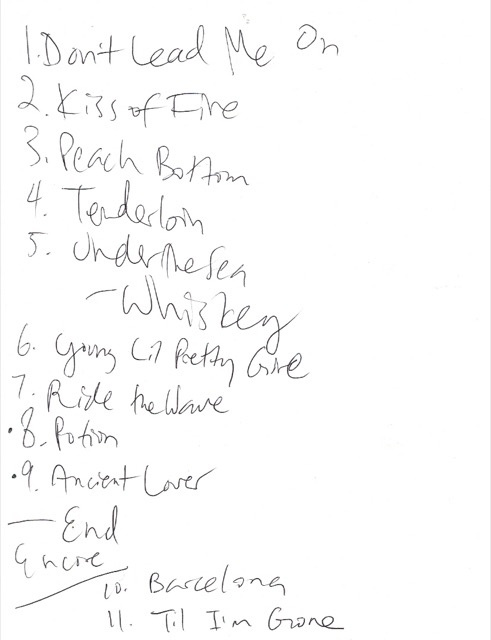 1. Don't Lead Me On
2. Kiss of Fire
3. Peach Bottom
4. Tenderloin
5. Under the Sea
- Whiskey
6. Young Lil Pretty Girl
7. Ride the Wave
•8. Potion
•9. Ancient Lover
— End
Encore
10. Barcelona
11. Til I'm Gone